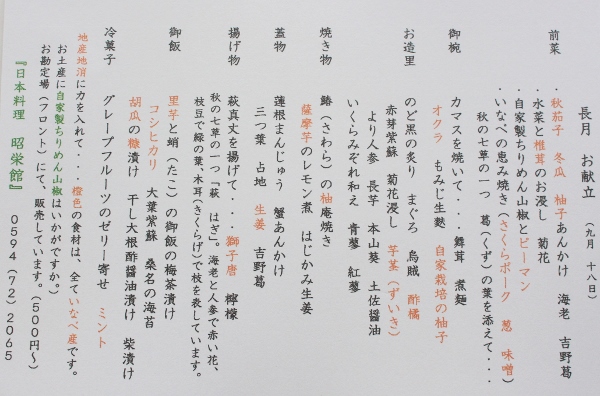 長月　お献立
（九月　十八日）
前菜
・秋茄子　冬瓜　柚子あんかけ　海老　吉野葛
・水菜と椎茸のお浸し　菊花
・自家製ちりめん山椒とピーマン
・いなべの恵み焼き（さくらポーク　葱　味噌）
秋の七草の一つ　葛（くず）の葉を添えて・・・
御椀
カマスを焼いて・・・　舞茸　煮麺
オクラ　もみじ生麩　自家栽培の柚子
お造里
のど黒の炙り　まぐろ　烏賊　酢橘
赤芽紫蘇　菊花浸し　芋茎（ずいき）
より人参　長芋　本山葵　土佐醤油
いくらみぞれ和え　青蓼　紅蓼
焼き物
鰆（さわら）の柚庵焼き
薩摩芋のレモン煮　はじかみ生姜
蓋物
蓮根まんじゅう　蟹あんかけ
三つ葉　占地　生姜　吉野葛
揚げ物
萩真丈を揚げて・・・　獅子唐　檸檬
秋の七草の一つ「萩　はぎ」。海老と人参で赤い花、
枝豆で緑の葉、木耳（きくらげ）で枝を表しています。
御飯
里芋と蛸（たこ）の御飯の梅茶漬け
コシヒカリ　大葉紫蘇　桑名の海苔
胡瓜の糠漬け　干し大根酢醤油漬け　柴漬け
冷菓子
グレープフルーツのゼリー寄せ　ミント
地産地消に力を入れて・・・橙色の食材は、全ていなべ産です。
お土産に自家製ちりめん山椒はいかがですか。
お勘定場（フロント）にて、販売しています。（５００円～）
『日本料理　昭栄館』　０５９４（７２）２０６５